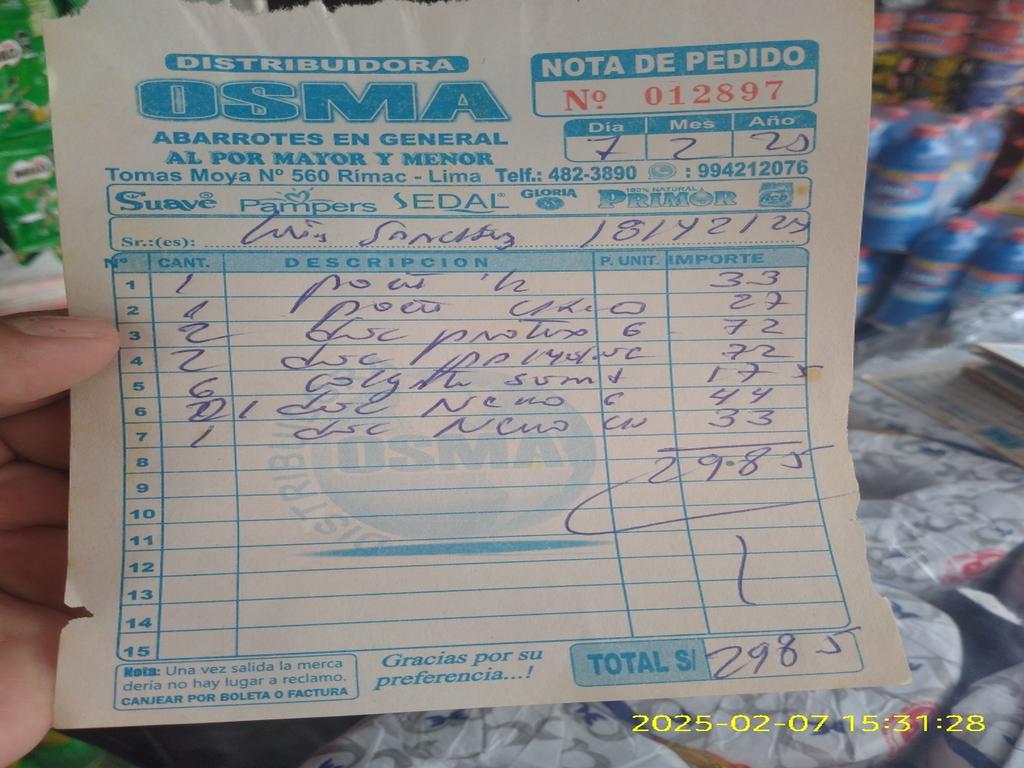 DISTRIBUIDORA
OSMA
ABARROTES EN GENERAL
AL POR MAYOR Y MENOR
Tomas Moya Nº 560 Rímac - Lima Telf.: 482-3890 : 994212076
NOTA DE PEDIDO
Nº 012897
Día Mes Año
7 2 25
Suave Pampers SEDAL GLORIA 100% NATURAL PRIMOR
Sr.:(es): Luis Sanchez
Nº CANT. DESCRIPCION P. UNIT. IMPORTE
1 1 33
2 1 27
3 2 doc 6 72
4 2 doc 72
5 6 17 5
6 1 doc Neno G 44
7 1 doc Neno CH 33
8 298.5
9
10
11
12
13
14
15
OSMA
Nota: Una vez salida la merca
dería no hay lugar a reclamo.
CANJEAR POR BOLETA O FACTURA
Gracias por su
preferencia...!
TOTAL S/ 298 5
2025-02-07 15:31:28